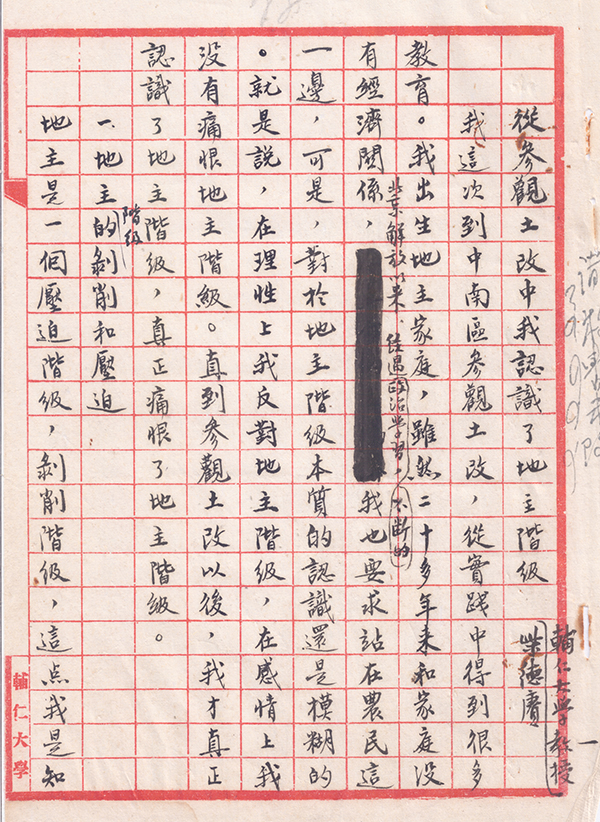 從參觀土改中我認識了地主階級
輔仁大學教授
柴德賡
我這次到中南區參觀土改，從實踐中得到很多
教育。我出生地主家庭，雖然二十多年來和家庭沒
北京解放以來，經過政治學習，不斷的
有經濟關係，我也要求站在農民這
一邊，可是，對於地主階級本質的認識還是模糊的
。就是說，在理性上我反對地主階級，在感情上我
沒有痛恨地主階級。真到參觀土改以後，我才真正
認識了地主階級，真正痛恨了地主階級。
一、地主階級的剝削和壓迫
地主是一個壓迫階級，剝削階級，這点我是知
輔仁大學
一